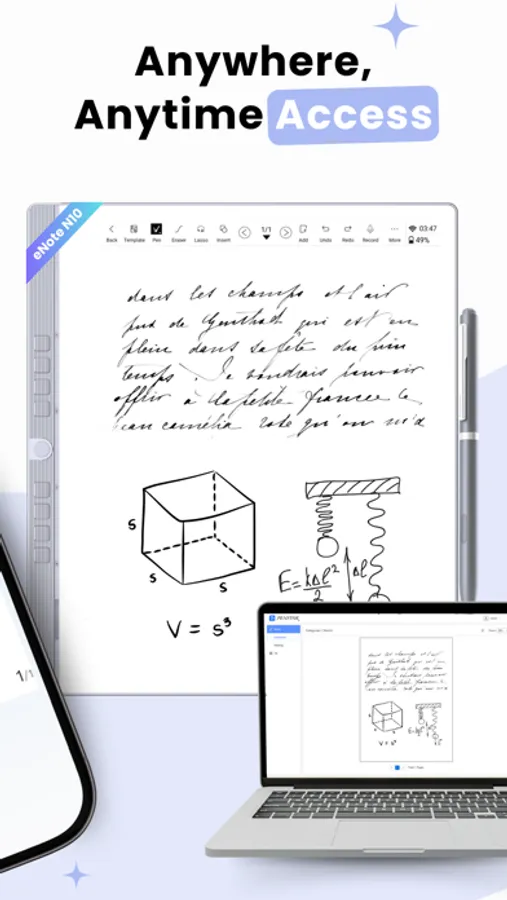 Anywhere,
Anytime Access
eNote N10
Back Template Pen Eraser Lasso Insert 1/1 Add Undo Redo Record More 03:47 49%
dans les champs et l'air
pur de qui est en
plein dans sa fête du prin
temps. Je voudrais pouvoir
offrir à la petite france le
camélia rose qu'on m'a
s
s
s
V = s³
E = kΔl²/2
Δl
1/1
V = s³